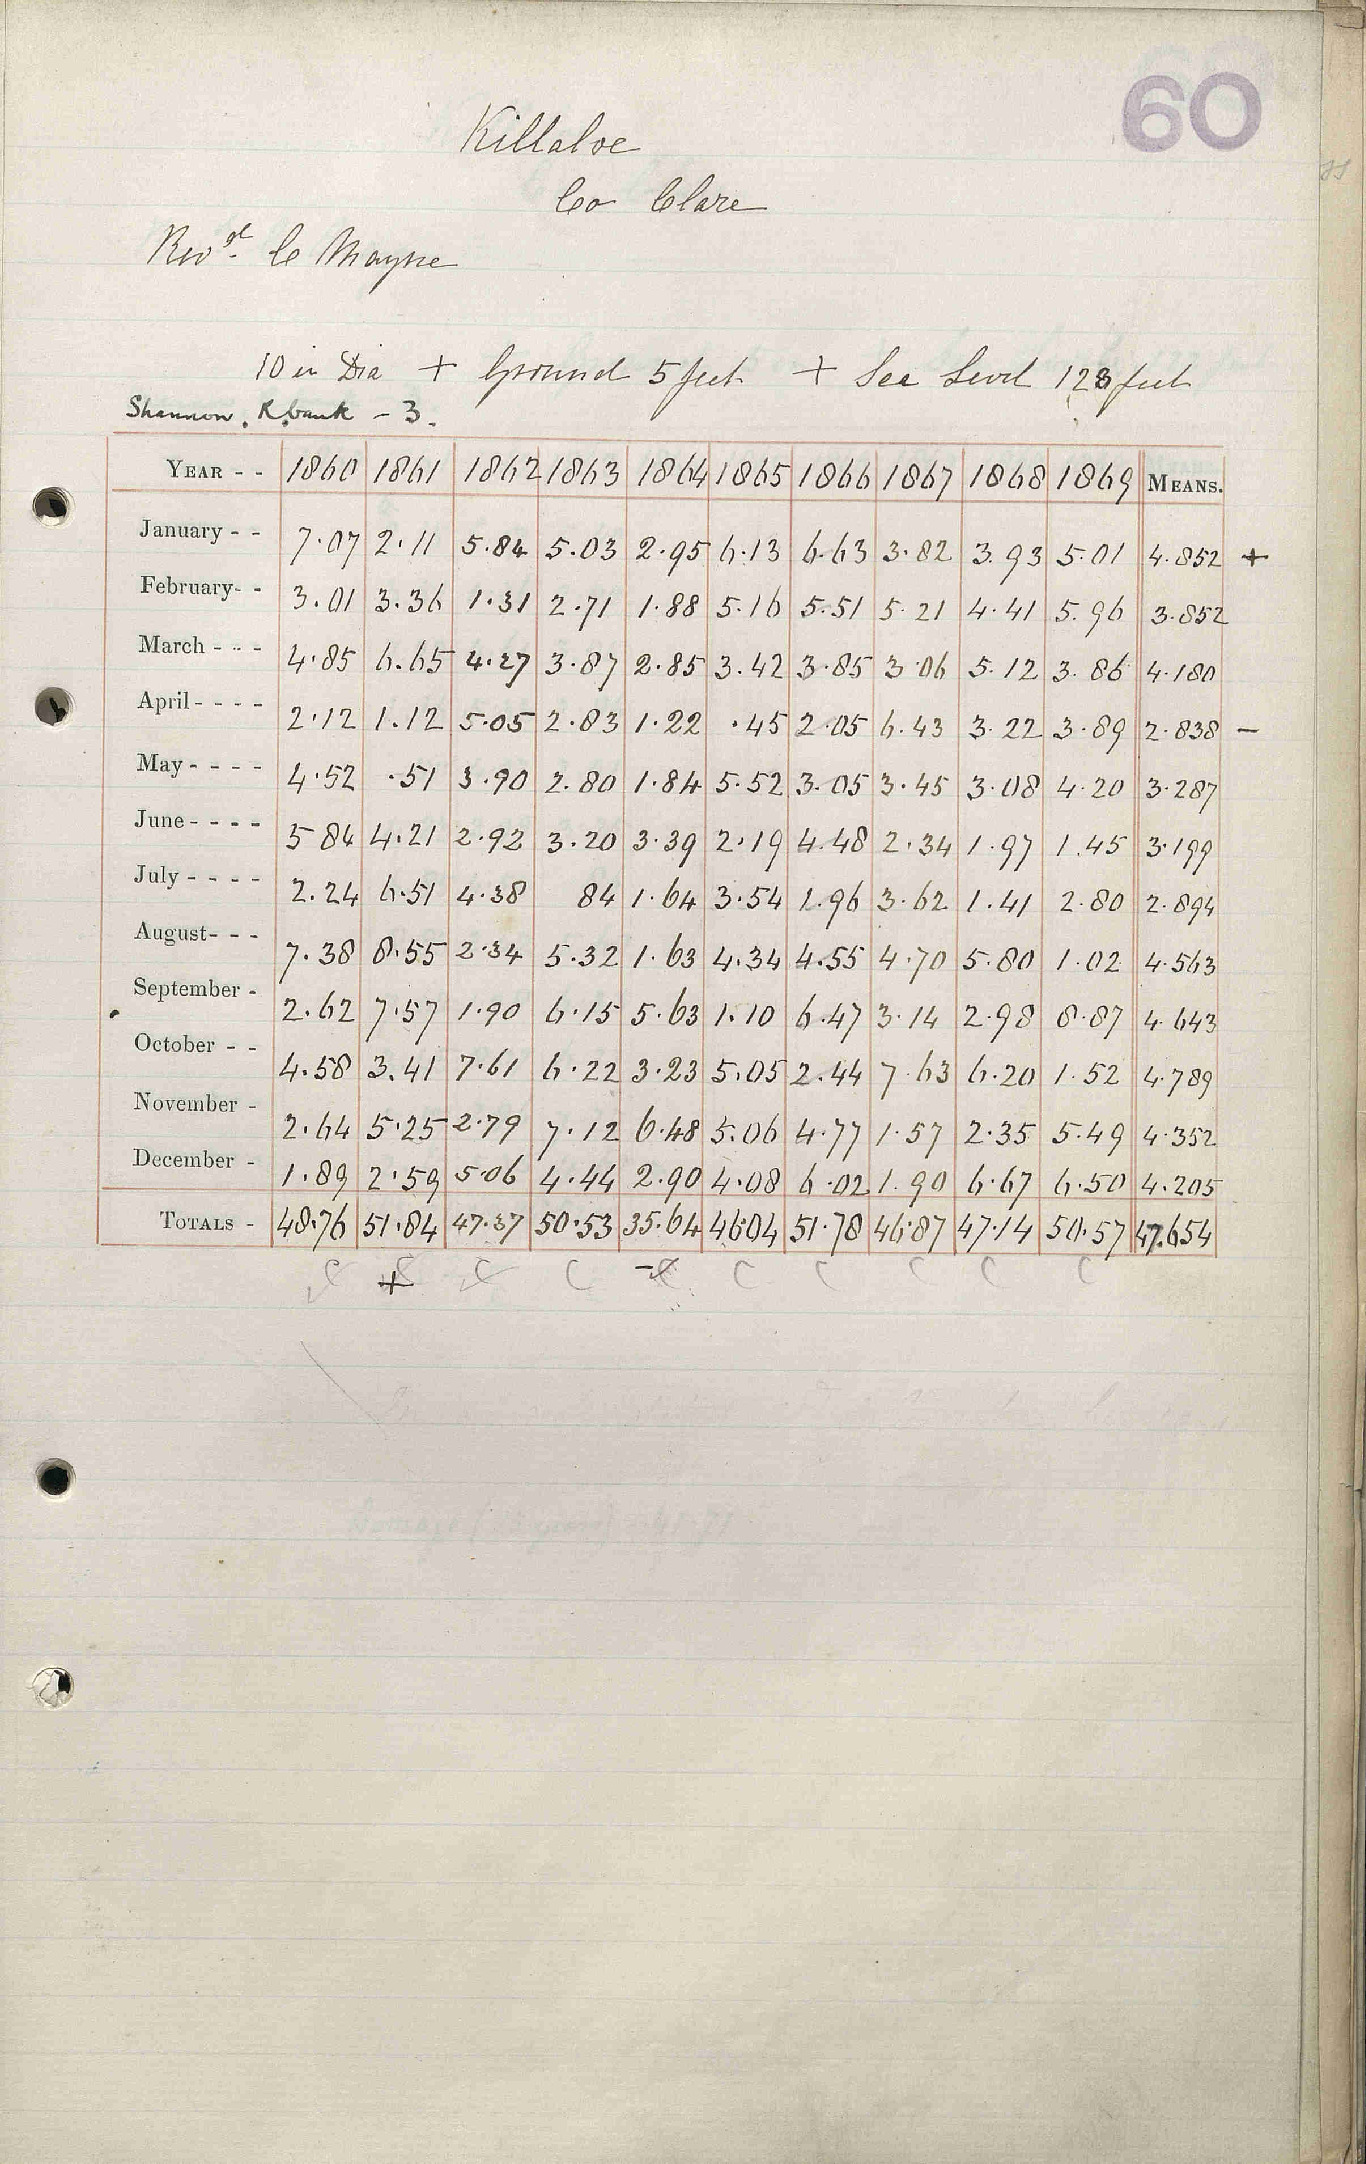 60
Killaloe
Co Clare
Revd. C Mayne
10 in Dia + Ground 5 feet + Sea Level 128 feet
Shannon. R. bank - 3.
YEAR - - 1860 1861 1862 1863 1864 1865 1866 1867 1868 1869 MEANS.
January - - 7.07 2.11 5.84 5.03 2.95 6.13 6.63 3.82 3.93 5.01 4.852 +
February- - 3.01 3.36 1.31 2.71 1.88 5.16 5.51 5.21 4.41 5.96 3.852
March - - - 4.85 6.65 4.27 3.87 2.85 3.42 3.85 3.06 5.12 3.86 4.180
April - - - - 2.12 1.12 5.05 2.83 1.22 .45 2.05 6.43 3.22 3.89 2.838 -
May - - - - 4.52 .51 3.90 2.80 1.84 5.52 3.05 3.45 3.08 4.20 3.287
June - - - - 5 84 4.21 2.92 3.20 3.39 2.19 4.48 2.34 1.97 1.45 3.199
July - - - - 2.24 6.51 4.38 84 1.64 3.54 1.96 3.62 1.41 2.80 2.894
August- - - 7.38 8.55 2.34 5.32 1.63 4.34 4.55 4.70 5.80 1.02 4.563
September - 2.62 7.57 1.90 6.15 5.63 1.10 6.47 3.14 2.98 8.87 4.643
October - - 4.58 3.41 7.61 6.22 3.23 5.05 2.44 7.63 6.20 1.52 4.789
November - 2.64 5.25 2.79 7.12 6.48 5.06 4.77 1.57 2.35 5.49 4.352
December - 1.89 2.59 5.06 4.44 2.90 4.08 6.02 1.90 6.67 6.50 4.205
TOTALS - 48.76 51.84 47.37 50.53 35.64 46.04 51.78 46.87 47.14 50.57 47.654
C + C C C - C C C C C C